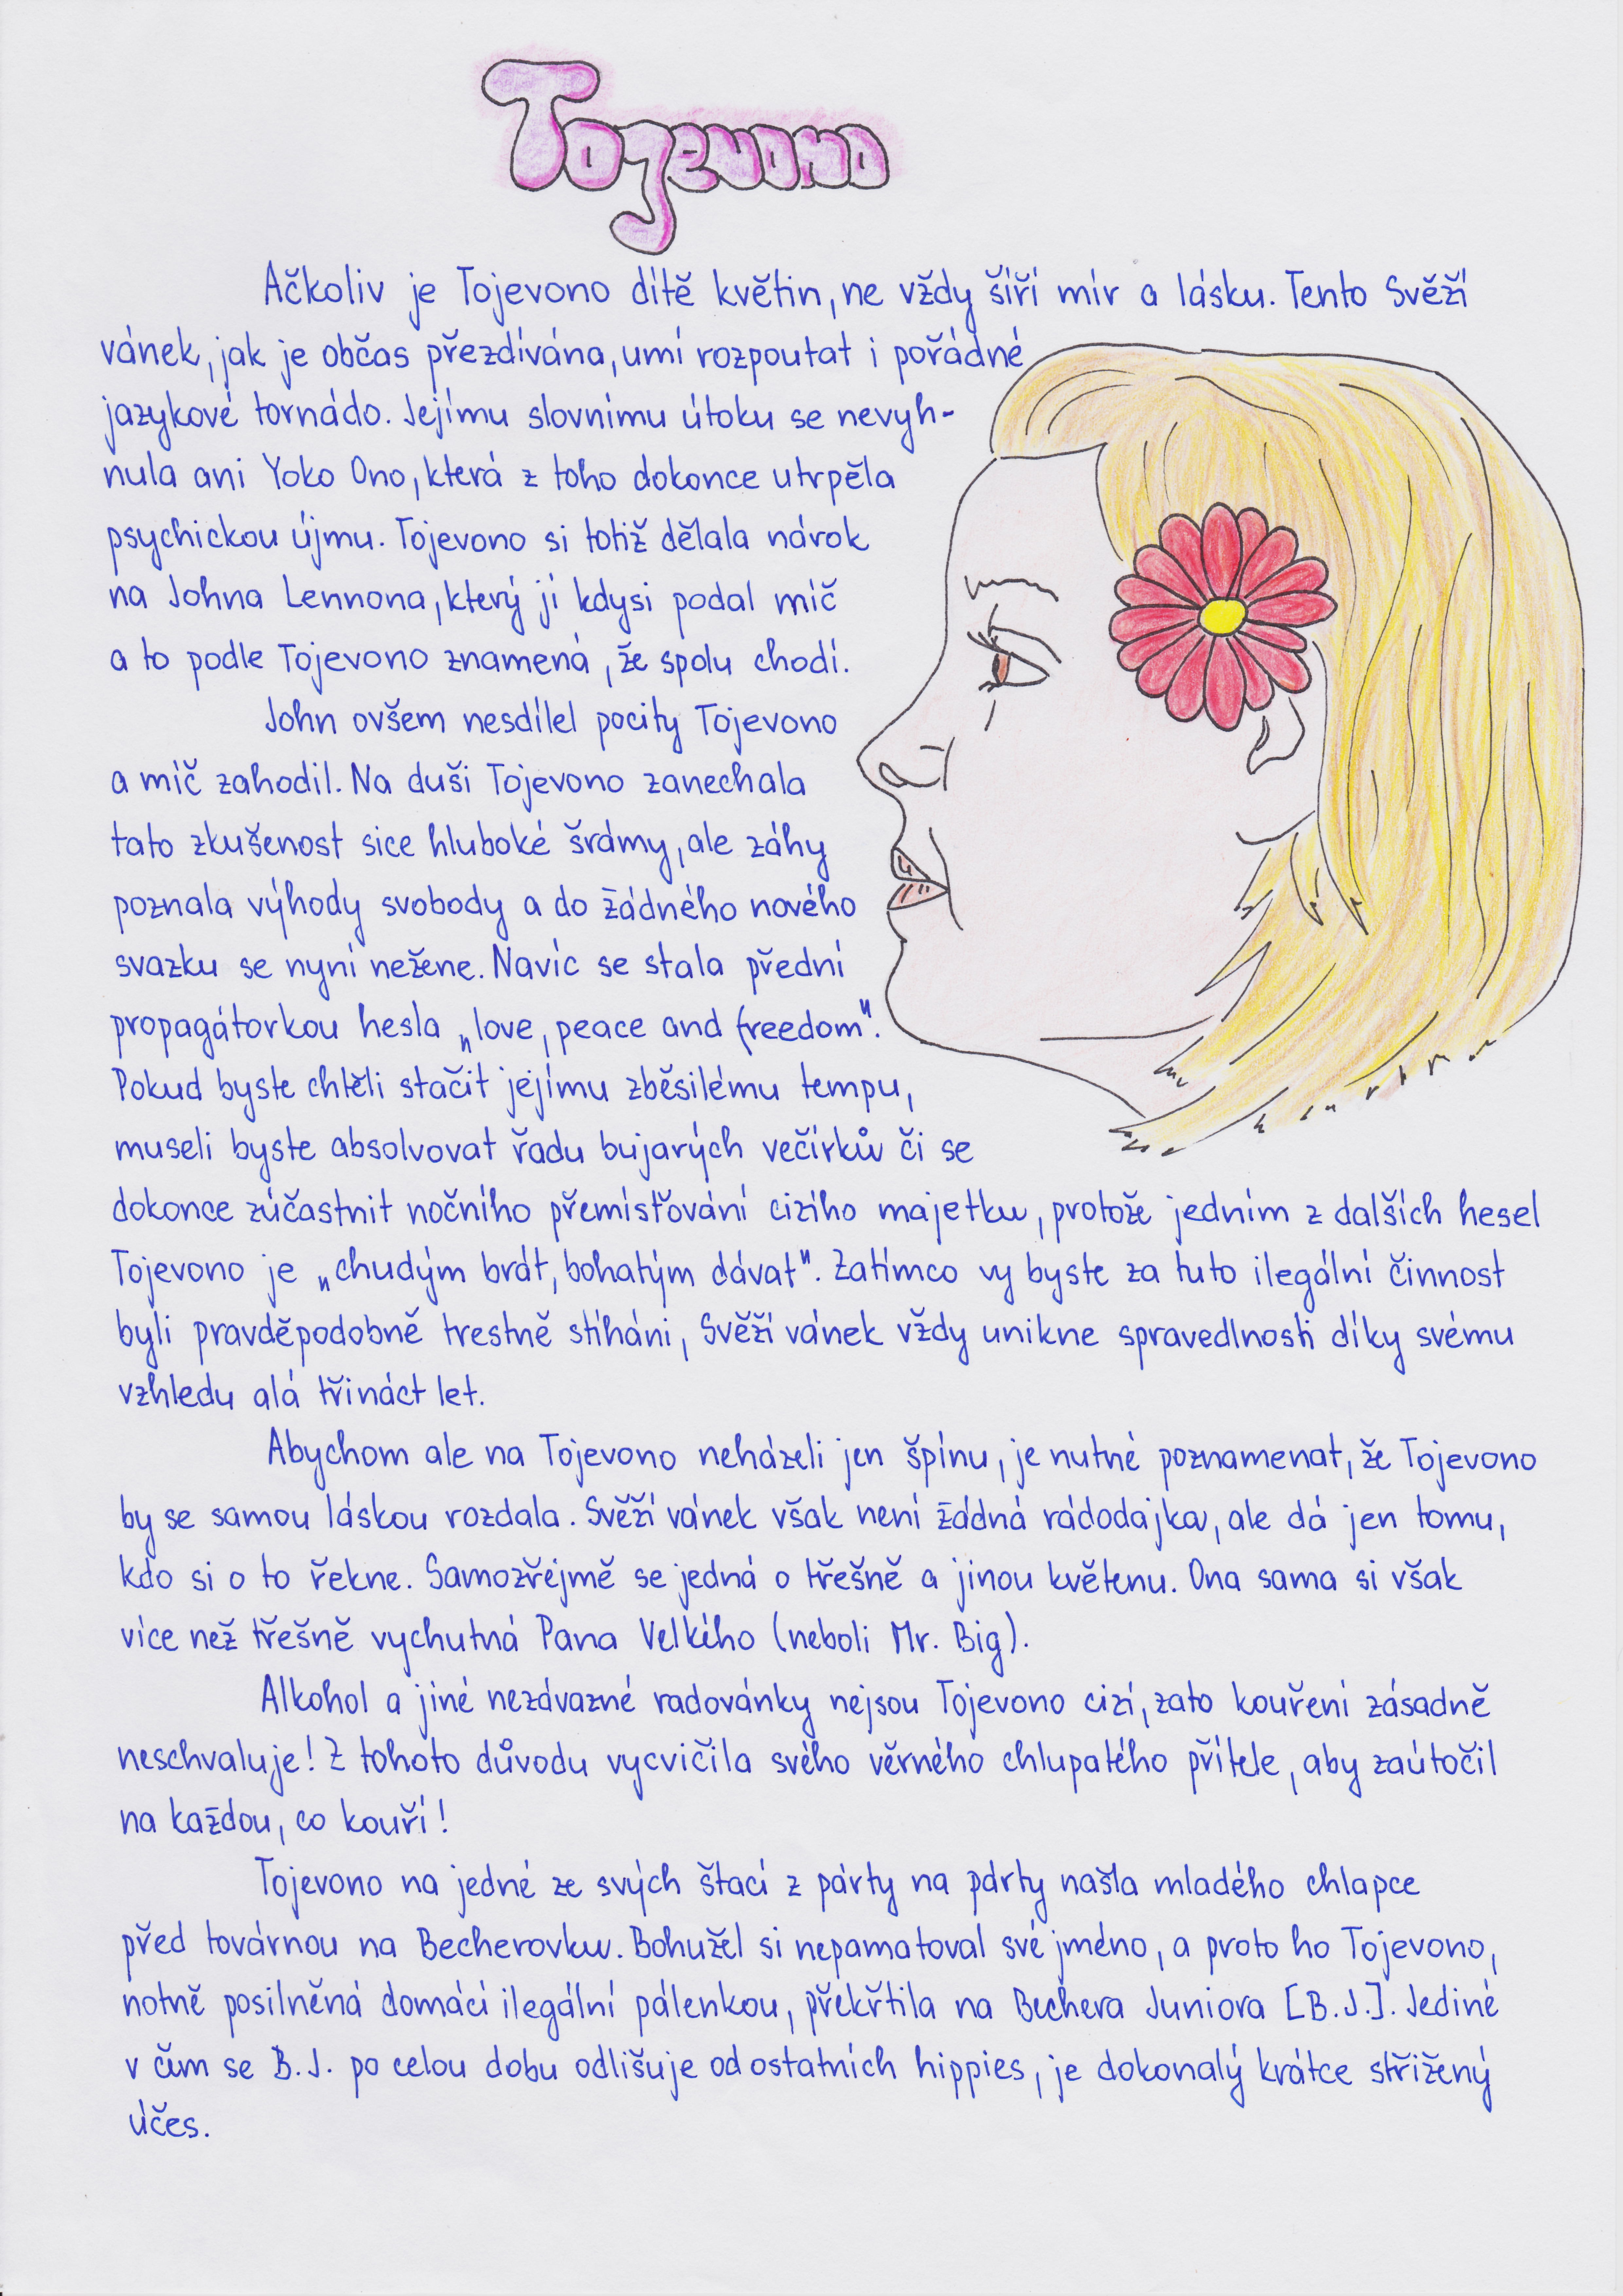 Tojevono
Ačkoliv je Tojevono dítě květin, ne vždy šíří mír a lásku. Tento Svěží
vánek, jak je občas přezdívána, umí rozpoutat i pořádné
jazykové tornádo. Jejímu slovnímu útoku se nevyh-
nula ani Yoko Ono, která z toho dokonce utrpěla
psychickou újmu. Tojevono si totiž dělala nárok
na Johna Lennona, který jí kdysi podal míč
a to podle Tojevono znamená, že spolu chodí.
John ovšem nesdílel pocity Tojevono
a míč zahodil. Na duši Tojevono zanechala
tato zkušenost sice hluboké šrámy, ale záhy
poznala výhody svobody a do žádného nového
svazku se nyní nežene. Navíc se stala přední
propagátorkou hesla „love, peace and freedom".
Pokud byste chtěli stačit jejímu zběsilému tempu,
museli byste absolvovat řadu bujarých večírků či se
dokonce zúčastnit nočního přemísťování cizího majetku, protože jedním z dalších hesel
Tojevono je „chudým brát, bohatým dávat". Zatímco vy byste za tuto ilegální činnost
byli pravděpodobně trestně stíháni, Svěží vánek vždy unikne spravedlnosti díky svému
vzhledu alá třináct let.
Abychom ale na Tojevono neházeli jen špínu, je nutné poznamenat, že Tojevono
by se samou láskou rozdala. Svěží vánek však není žádná rádodajka, ale dá jen tomu,
kdo si o to řekne. Samozřejmě se jedná o třešně a jinou květenu. Ona sama si však
více než třešně vychutná Pana Velkého (neboli Mr. Big).
Alkohol a jiné nezávazné radovánky nejsou Tojevono cizí, zato kouření zásadně
neschvaluje! Z tohoto důvodu vycvičila svého věrného chlupatého přítele, aby zaútočil
na každou, co kouří!
Tojevono na jedné ze svých štací z párty na párty našla mladého chlapce
před továrnou na Becherovku. Bohužel si nepamatoval své jméno, a proto ho Tojevono,
notně posilněná domácí ilegální pálenkou, překřtila na Bechera Juniora [B.J.]. Jediné
v čím se B.J. po celou dobu odlišuje od ostatních hippies, je dokonalý krátce střižený
účes.